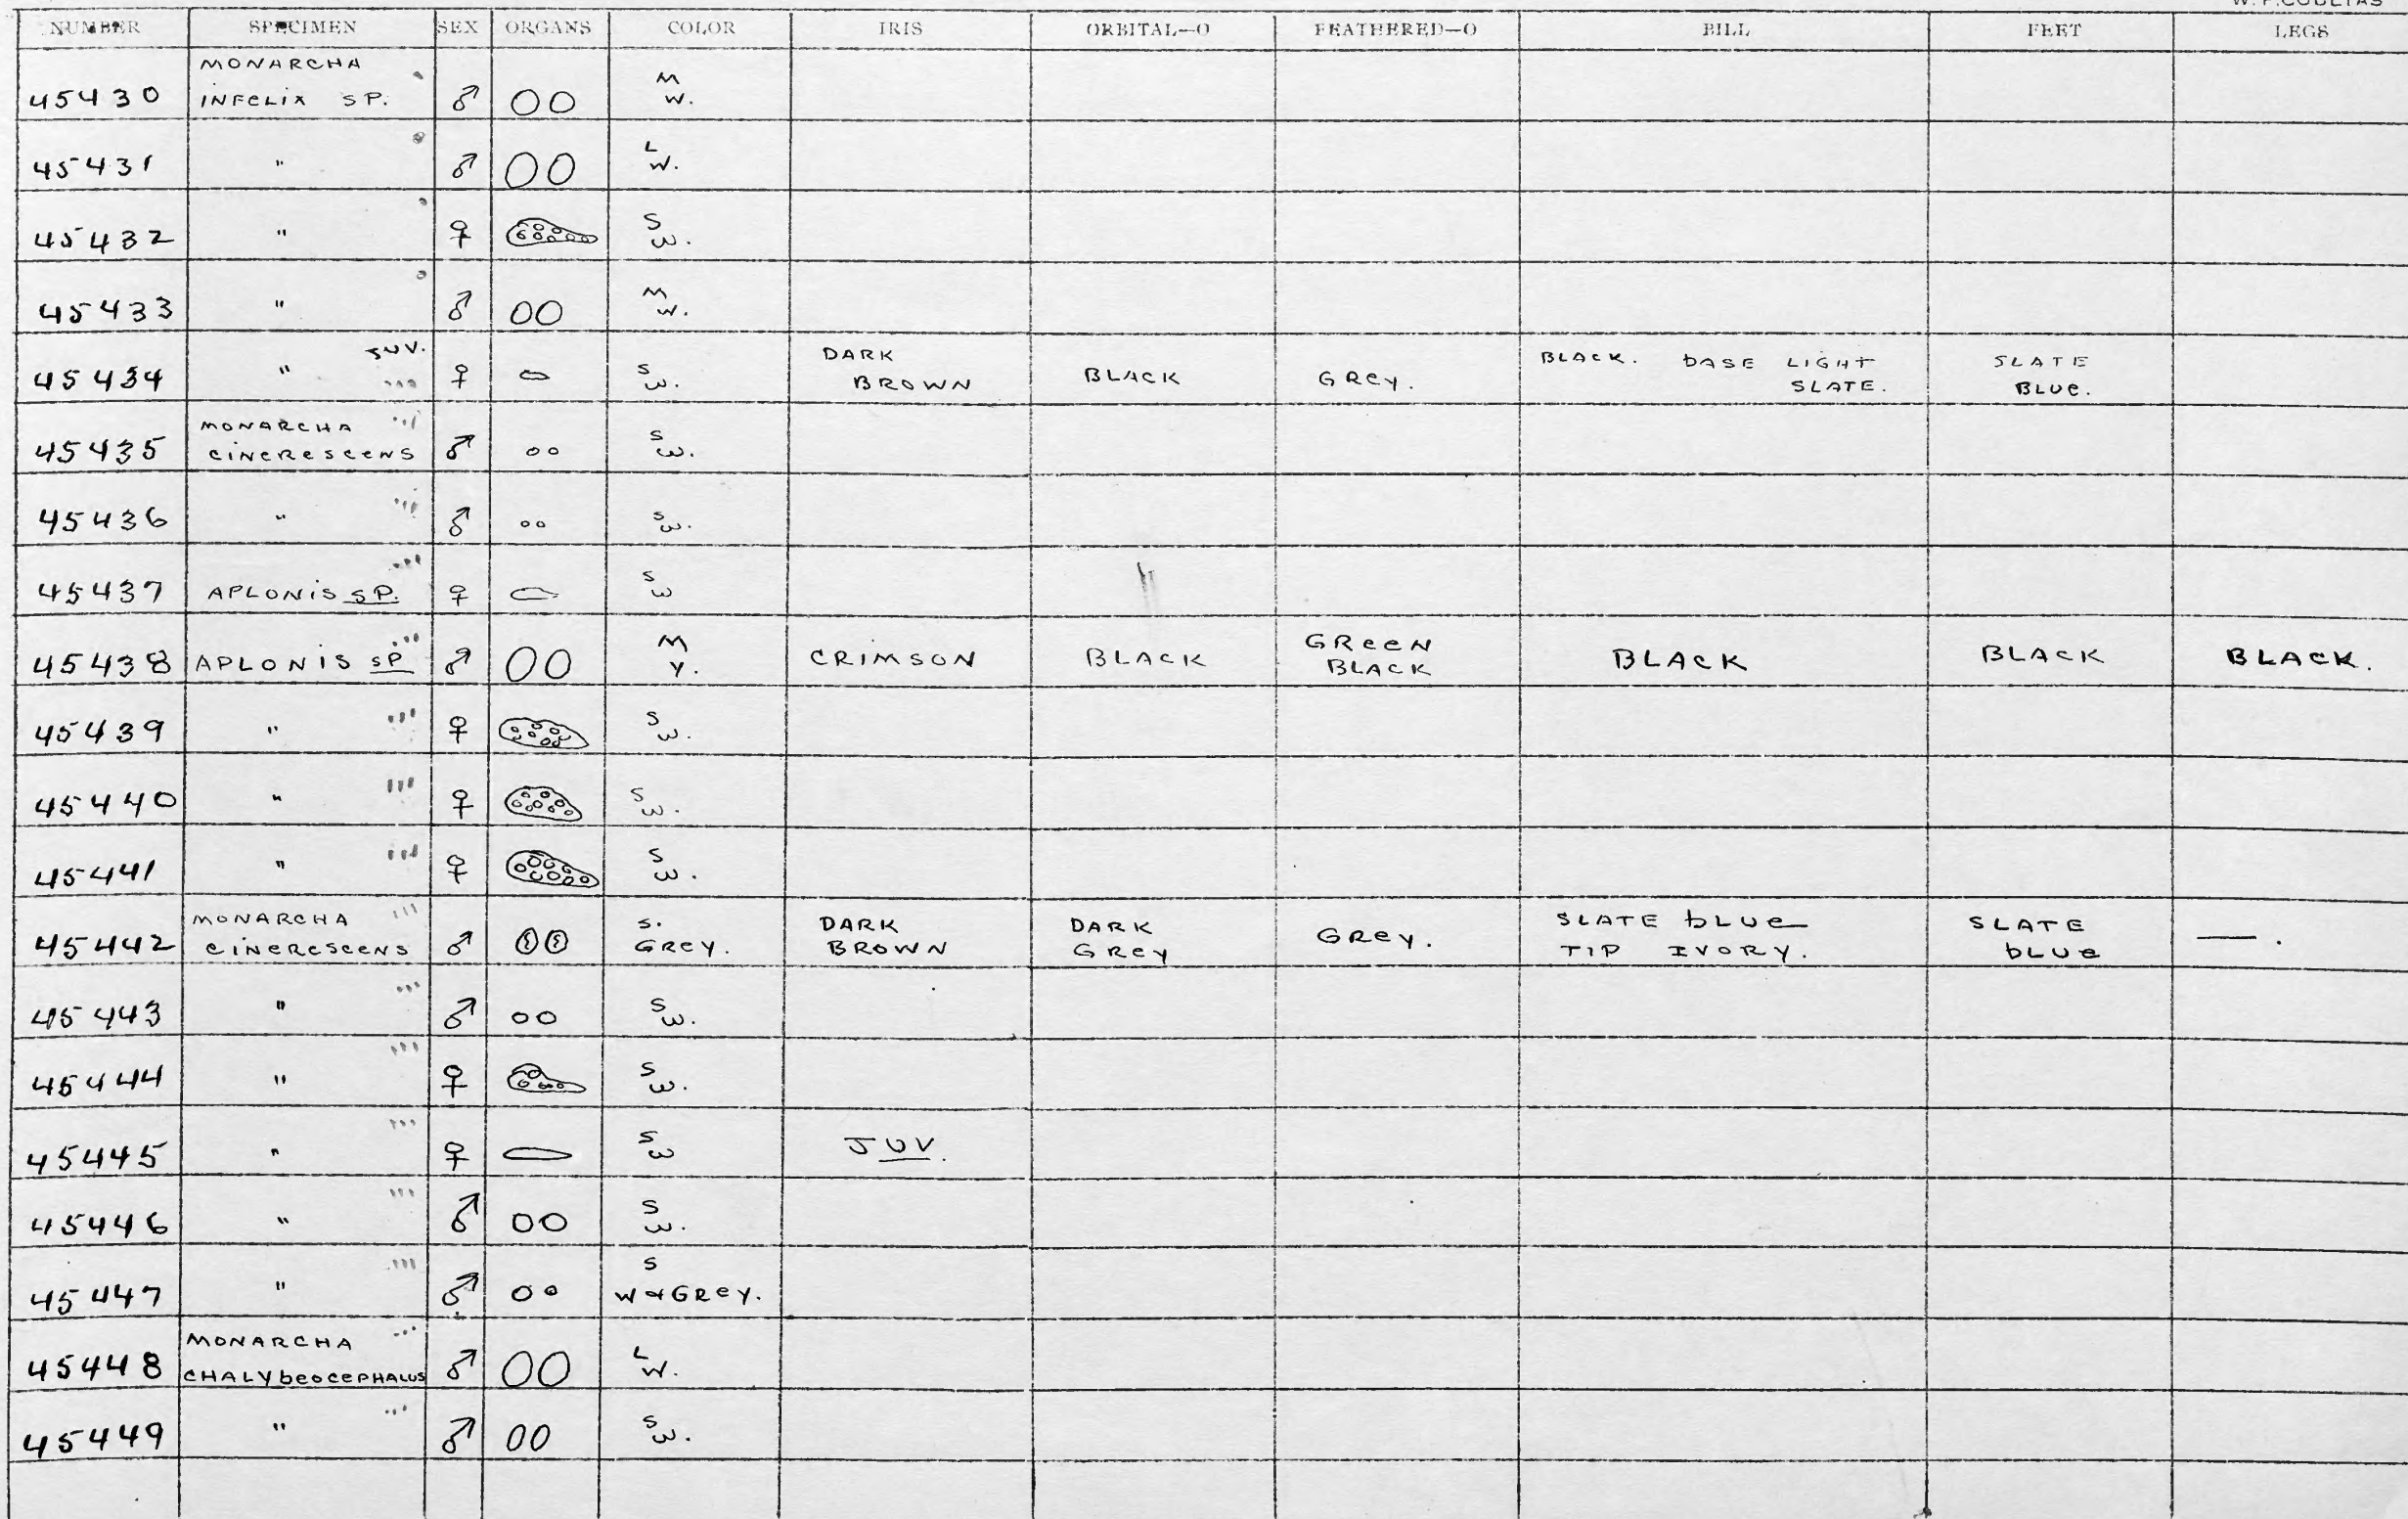 W. P. COULTAS
NUMBER SPECIMEN SEX ORGANS COLOR IRIS ORBITAL—O FEATHERED—O BILL FEET LEGS
45430 MONARCHA INFELIX SP. ♂ M W.
45431 " ♂ L W.
45432 " ♀ S W.
45433 " ♂ M W.
45434 " JUV. ♀ S W. DARK BROWN BLACK GREY. BLACK. BASE LIGHT SLATE. SLATE BLUE.
45435 MONARCHA CINERESCENS ♂ S W.
45436 " ♂ S W.
45437 APLONIS SP. ♀ S W
45438 APLONIS SP ♂ M Y. CRIMSON BLACK GREEN BLACK BLACK BLACK BLACK.
45439 " ♀ S W.
45440 " ♀ S W.
45441 " ♀ S W.
45442 MONARCHA CINERESCENS ♂ S. GREY. DARK BROWN DARK GREY GREY. SLATE BLUE TIP IVORY. SLATE BLUE —.
45443 " ♂ S W.
45444 " ♀ S W.
45445 " ♀ S W JUV.
45446 " ♂ S W.
45447 " ♂ S W & GREY.
45448 MONARCHA CHALYBEOCEPHALUS ♂ L W.
45449 " ♂ S W.